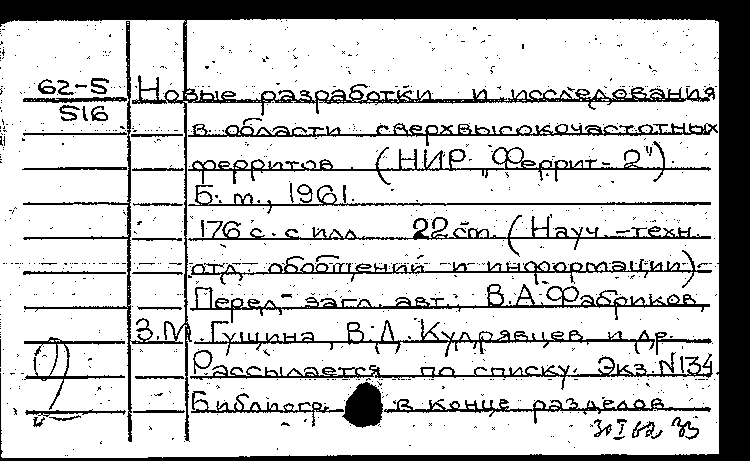 62-5 Новые разработки и исследования
516 в области сверхвысокочастотных
ферритов (НИР „Феррит-2")
Б. т., 1961.
176 с. с илл. 22 см. (Науч.-техн.
отд. обобщений и информации)-
Перед загл. авт.: В.А.Фабриков,
З.М.Гущина, В.Д.Кудрявцев и др.
Рассылается по списку. Экз.N134
Библиогр. в конце разделов.